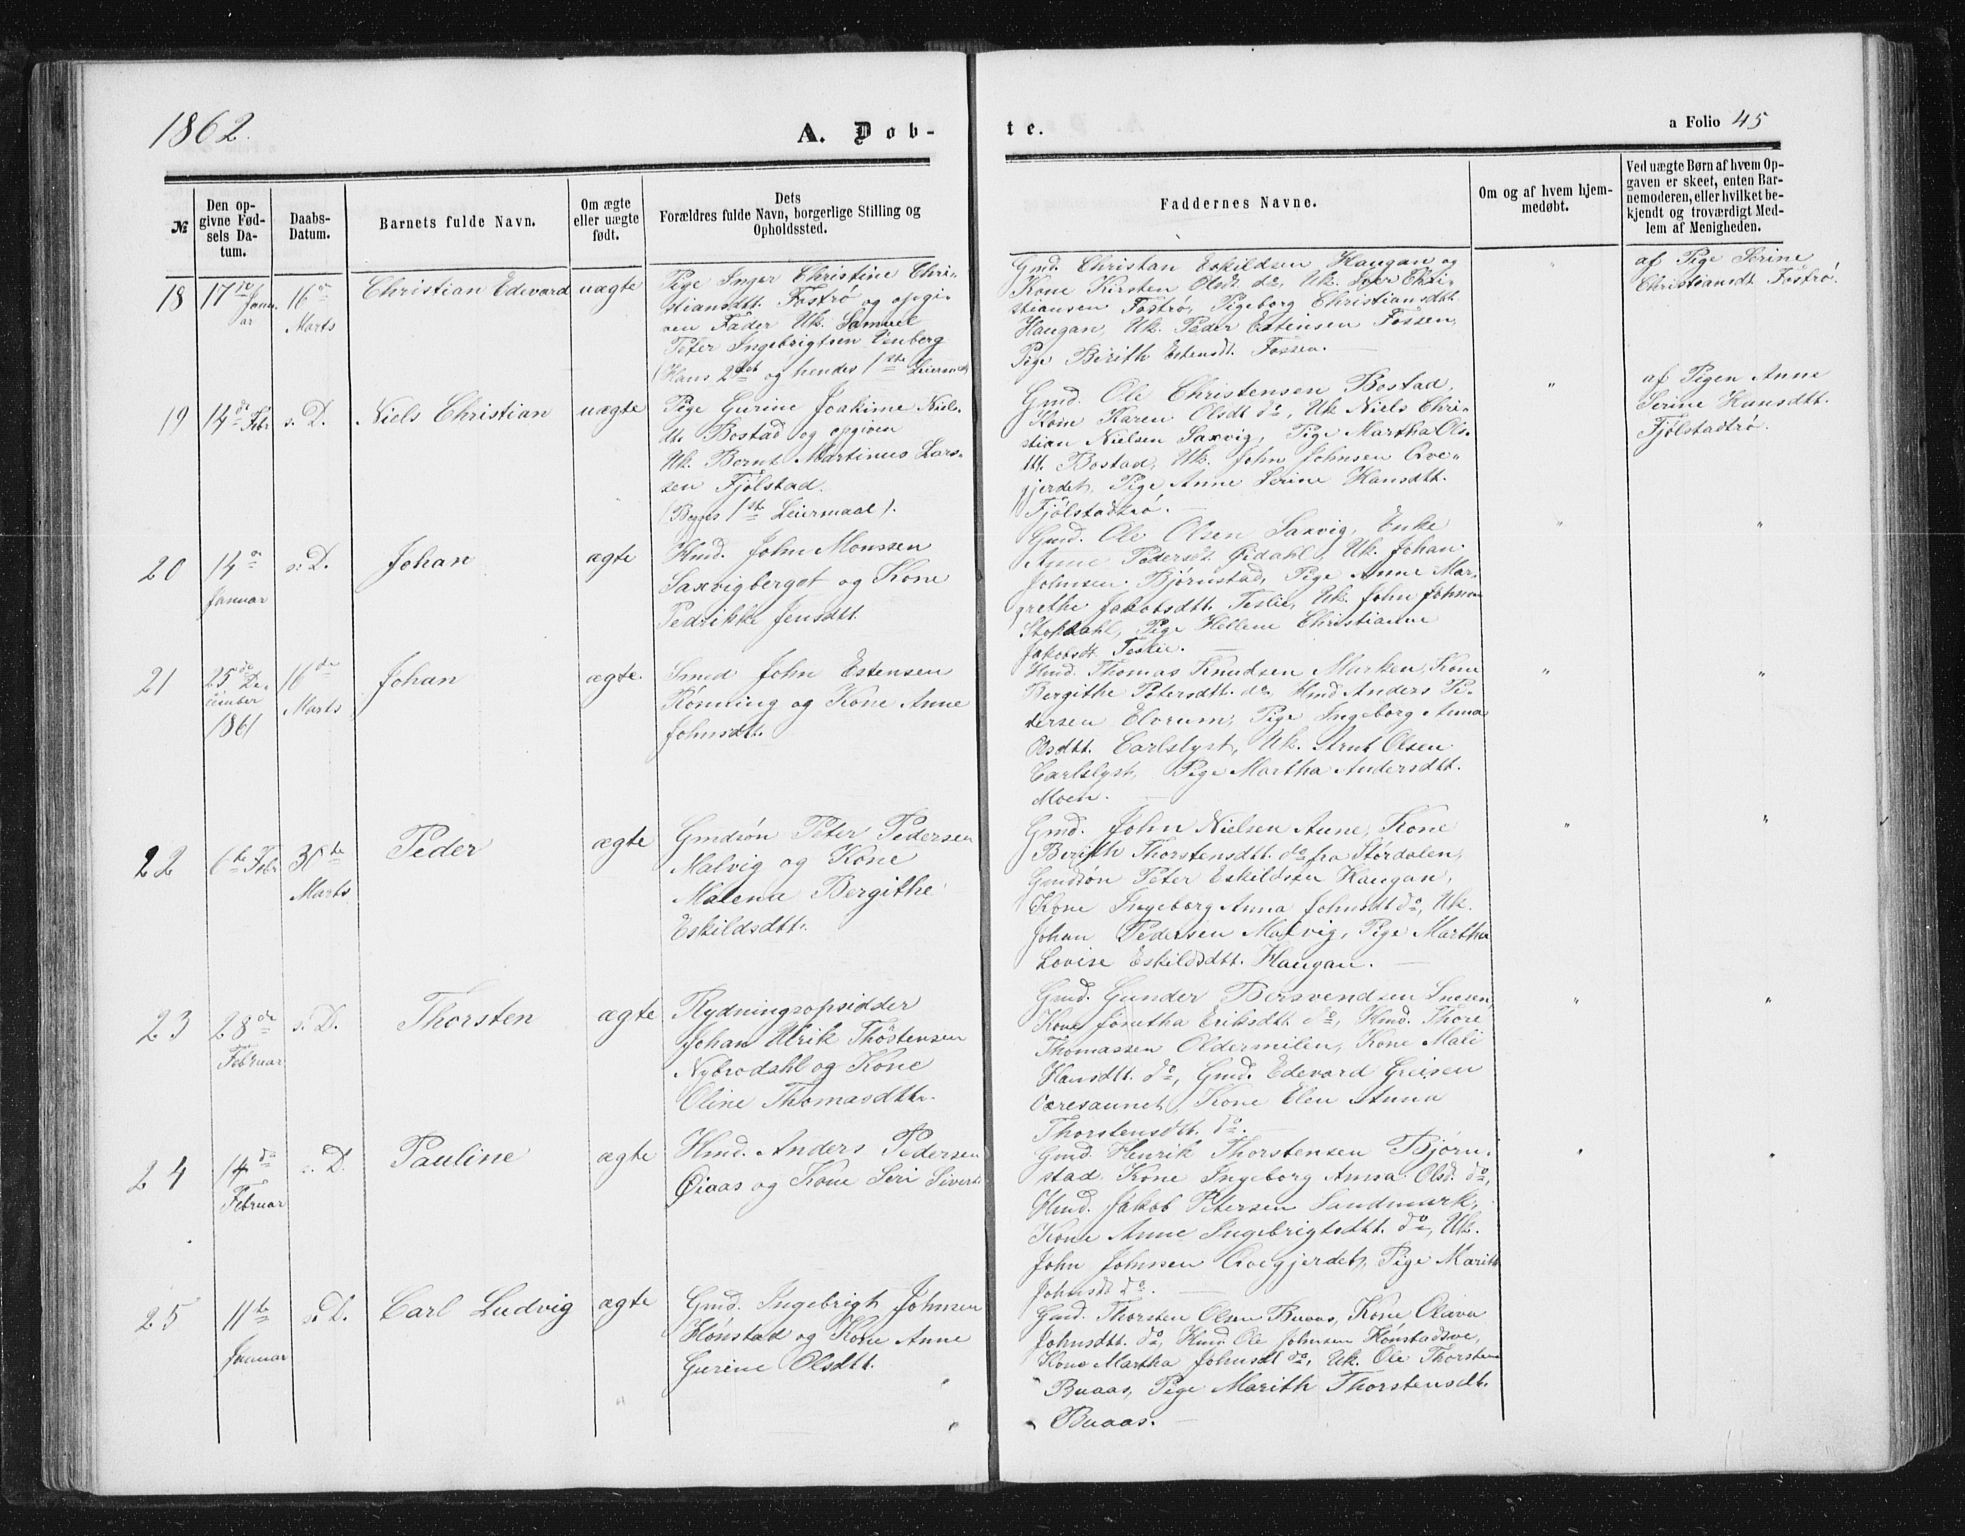 1862.
A. Døb-
te.
a Folio 45
№
Den op-
givne Fød-
sels Da-
tum.
Daabs-
Datum.
Barnets fulde Navn.
Om ægte
eller uægte
født.
Dets
Forældres fulde Navn, borgerlige Stilling og
Opholdssted.
Faddernes Navne.
Om og af hvem hjem-
medøbt.
Ved uægte Børn af hvem Op-
gaven er skeet, enten Bar-
nemoderen, eller hvilket be-
kjendt og troværdigt Med-
lem af Menigheden.
18
17de Janu-
ar
16de
Marts
Christian Edevard
uægte
Pige Inger Christine Chri-
stiansdtt. Fostrø og opgi-
ven Fader Uk. Samuel
Peter Ingebrigtsen Venberg
(Hans 2det og hendes 1ste Leiermaal
Gmd. Christian Eskildsen Haugan og
Kone Kirsten Olsdt. do, Uk. Iver Chri-
stiansen Fostrø, Pige Ingeborg Christiansdtt.
Haugan, Uk. Peder Estensen Fossen,
Pige Birith Estensdt. Fossen.
"
af Pige Serine
Christiansdt Fostrø.
19
14de Febr
s. D.
Niels Christian
uægte
Pige Gurine Joakime Niels-
dt. Bostad og opgiven
Uk. Bernt Martinus Lars-
sen Fjølstad.
(Begges 1ste Leiermaal).
Gmd. Ole Christensen Bostad,
Kone Karen Olsdt do, Uk Niels Chri-
stian Nielsen Saxvig, Pige Martha Ols-
dtt. Bostad, Uk. John Johnsen Qve-
gjerdet, Pige Anne Serine Hansdtt.
Fjølstadtrø.
"
af Pigen Anne
Serine Hansdtt.
Fjølstadtrø.
20
14de
Januar
s. D.
Johan
ægte
Hmd. John Monssen
Saxvigberget og Kone
Pedrikke Jensdtt.
Gmd. Ole Olsen Saxvig, Enke
Anne Pedersdt. Øidahl, Uk. Johan
Johnsen Bjørnstad, Pige Anne Mar-
grethe Jakobsdtt. Teslie, Uk. John Johnsen
Stokdahl, Pige Hellene Christianne
Jakobsdt Teslie.
"
"
21
25de De-
cember
1861
16de
Marts
Johan
ægte.
Smed John Estensen
Rønning og Kone Anne
Johnsdtt.
Hmd. Thomas Knudsen Marken, Kone
Bergithe Petersdtt. do, Hmd Anders Pe-
dersen Elorum, Pige Ingeborg Anna
Olsdtt. Carlslyst, Uk. Arnt Olsen
Carlslyst, Pige Martha Andersdtt.
Moen.
"
"
22
6te Febr
30te
Marts
Peder
ægte
Gmdsøn Peter Pedersen
Malvig og Kone
Malena Bergithe
Eskildsdtt.
Gmd. John Nielsen Aune, Kone
Berith Thorstensdtt. do fra Størdalen,
Gmdsøn Peter Eskildsen Haugan,
Kone Ingeborg Anna Johnsdt do, Uk.
Johan Pedersen Malvig, Pige Martha
Lovise Eskildsdtt. Haugan.
"
"
23
28de
Februar
s. D.
Thorsten
ægte
Rydningsopsidder
Johan Ulrik Thøstensen
Nybrodahl og Kone
Oline Thomasdtt.
Gmd. Gunder Bersvendsen Snesen,
Kone Jonetha Eriksdtt. do, Hmd. Thore
Thomassen Oldermilen, Kone Mali
Hansdtt. do, Gmd. Edevard Greisen
Væresaunet, Kone Elen Anna
Thorstensdtt. do.
"
"
24
14de
Februar
s. D.
Pauline
ægte
Hmd. Anders Pedersen
Øiaas og Kone Seri Siverts
Gmd. Henrik Thorstensen Bjørn-
stad Kone Ingeborg Anna Olsd. do,
Hmd. Jakob Petersen Sandmark,
Kone Anne Ingebrigtsdtt. do, Uk.
John Johnsen Qvegjerdet, Pige Marith
Johnsd do.
"
"
25
11te
Januar
s. D.
Carl Ludvig
ægte
Gmd. Ingebrigt Johnsen
Hønstad og Kone Anne
Gurine Olsdtt.
Gmd. Thorsten Olsen Buaas, Kone Olava
Johnsdtt. do, Hmd. Ole Johnsen Hønstadsve,
Kone Martha Johnsdt do, Uk. Ole Thorstens
Buaas, Pige Marith Thorstensdt.
Buaas.